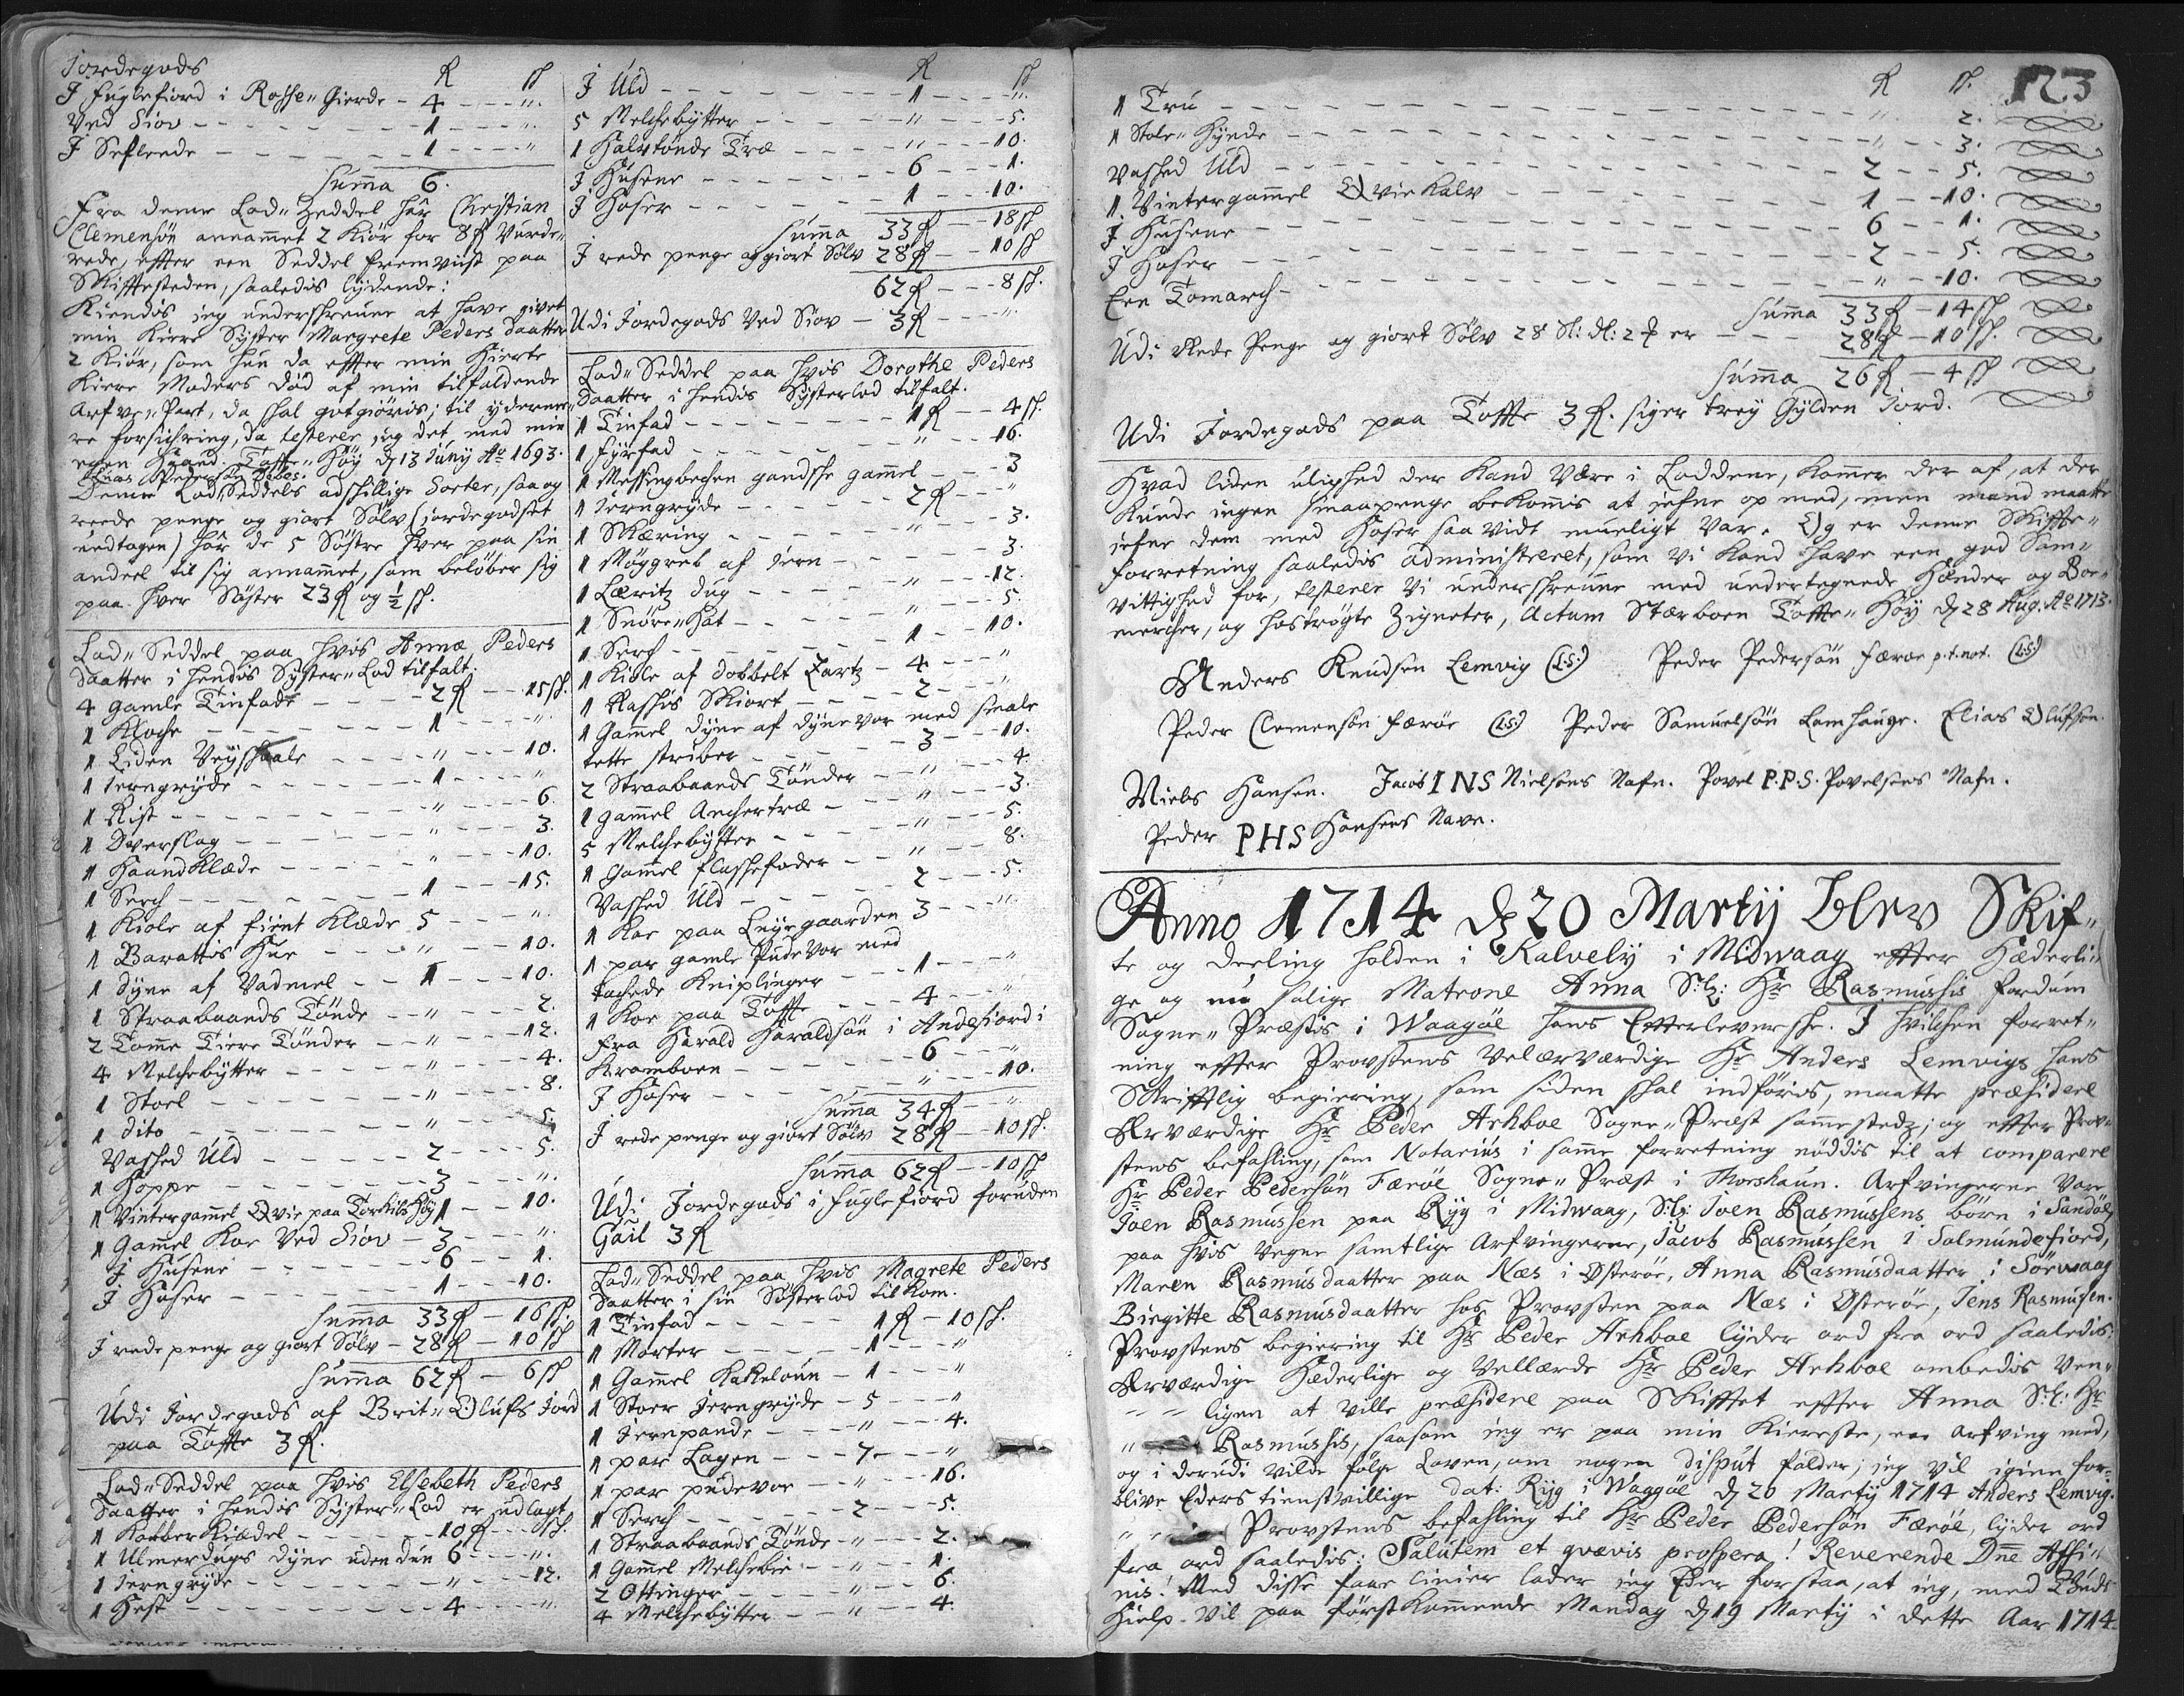 Jordegods
R ß
J Fuglefiord i Rosse-Gierde - 4 - - - ".
Ved Siov - - - - 1 - - - ".
J Seflende - - - - 1 - - - "
Summa 6.
Fra denne Lod-Zeddel har Christian
Clemensøn annammet 2 Kiør for 8 R Vurde-
rede, effter een Seddel fremviist paa
Skifftesteden, saaledis lydende:
Kiendis jeg underskrevne at have givet
min Kiere Syster Margrete Peders Daatter
2 Kiør, som hun da effter min Hierte
Kiere Moders død af min tilfaldende
Arfve-Part, da skal gotgiøris; til ydermee-
re forsichring, da testerer jeg det med min
egen Haand. Toffte-Høy d 13 Junij Ao 1693.
Denne Lod Seddels adskillige Sorter, saa og
reede penge og giort Sølv (jordegodset
undtagen) har de 5 Søstre hver paa sin
andeel til sig annammet, som beløber sig
paa hver Syster 23 R og ½ ß.
Lod-Seddel paa hvis Anna Peders
Daatter i hendis Syster-Lod tilfalt.
4 gamle Tinfade - - - 2 R - - 15 ß.
1 Kloche - - - - 1 - - - ".
1 Liden Veyskaale - - - " - - - 10.
1 Jerngryde - - - - 1 - - - "
1 Rist - - - - " - - - 6.
1 Overslag - - - - " - - - 3.
1 Haandklæde - - - - " - - - 10.
1 Serch - - - - 1 - - - 15.
1 Kiole af fiint Klæde 5 - - - ".
1 Barattis Hue - - - " - - - 10.
1 Dyne af Vadmel - - 1 - - - 10.
1 Straabaands Tønde - - " - - - 2.
2 Tomme Tiere Tønder - - " - - - 12.
4 Melchebytter - - - " - - - 4.
1 Stoel - - - - " - - - 8.
1 dito - - - - " - - - 5.
Vasked Uld - - - - 2 - - - 5.
1 Hoppe - - - - 3 - - - ".
1 Vintergammel Qvie paa Torkilshøy 1 - - 10.
1 Gammel Koe Ved Siov - 3 - - - ".
J Husene - - - - 6 - - - 1.
J Hoser - - - - 1 - - - 10.
Summa 33 R - 16 ß.
J rede penge og giort Sølv - 28 R - 10 ß
Summa 62 R - 6 ß
Udi Jordegods af Brit-Olufs Jord
paa Toffte 3 R.
Lod-Seddel paa hvis Elsebeth Peders
Daatter i hendis Syster-Lod er udlagt
1 Kobber Kiædel - - - 10 R - - ß.
1 Ulmerdugs dyne uden dun 6 - - - ".
1 Jerngryde - - - - " - - - 12.
1 Hest - - - - 4 - - - ".
R ß
J Uld - - - - 1 - - - ".
5 Melchebytter - - - - " - - - 5.
1 Halvtønde Træ - - - " - - - 10.
J Husene - - - - 6 - - - 1.
J Hoser - - - - 1 - - - 10.
Summa 33 R - 18 ß
J rede penge og giort Sølv 28 R - - 10 ß
62 R - - - 8 ß.
Udi Jordegods Ved Siov - 3 R - - - "
Lod-Seddel paa hvis Dorothe Peders
Daatter i hendis Systerlod tilfalt.
1 Tinfad - - - - 1 R - - 4 ß.
1 Fyrfad - - - - " - - - 16.
1 Messingbechen gandske gammel - - - 3
1 Jerngryde - - - - 2 R - - - "
1 Skæring - - - - " - - - 3.
1 Møggreb af Jern - - - - 3.
1 Læritz dug - - - - " - - - 12.
1 Snøre-Hat - - - - " - - - 5.
1 Serch - - - - 1 - - - 10.
1 Kiole af dobbelt Zartz - 4 - - - "
1 Raskis Skiort - - - 2 - - - "
1 Gammel Dyne af dynevor med smale
tette striber - - - - 3 - - - 10.
2 Straabaands Tønder - - " - - - 4
1 gammel Anchertræ - - " - - - 3.
5 Melchebytter - - - " - - - 5.
1 Gammel Flaskefoder - - " - - - 8.
Vasked Uld - - - - 2 - - - 5.
1 Koe paa Leyregaarden 3 - - - "
1 par gamle Pudevor med
tachede Kniplinger - - - 1 - - - "
1 Koe paa Toffte - - - 4 - - - "
Fra Harald Haraldsøn i Andefiord i
Kramboen - - - - 6 - - - "
J Hoser - - - - " - - - 10.
Summa 34 R - - "
J rede penge og giort Sølv 28 R - - 10 ß.
Summa 62 R - - 10 ß
Udi Jordegods i Fuglefiord foruden
Gail 3 R
Lod-Seddel paa hvis Magrete Peders
Daatter i sin Søsterlod tilkom.
1 Tinfad - - - - 1 R - 10 ß.
1 Morter - - - - 1 - - - "
1 Gammel Kakeloun - 1 - - - "
1 Stoer Jerngryde - 5 - - - "
1 Jernpande - - - " - - - 4.
1 par Lagen - - - 7 - - - "
1 par pudevor - - - " - - - 16.
1 Serch - - - - 2 - - - 5.
1 Straabaands Tønde - " - - - 2.
1 Gammel Melchebie - - " - - - 1.
2 Ottinger - - - " - - - 6.
4 Melchebytter - - - " - - - 4.
R ß. 123
1 Tru - - - - " - - - 2.
1 Stole-Hynde - - - - " - - - 3.
Vasked Uld - - - - 2 - - - 5.
1 Vintergammel Qvie Kalv - - - - 1 - - - 10.
J Husene - - - - 6 - - - 1.
J Hoser - - - - 2 - - - 5.
Een Tomarch - - - - " - - - 10.
Summa 33 R - 14 ß
Udi Rede Penge og giort Sølv 28 Sl: dl: 2 ₰ er - - 28 R - 10 ß.
Summa 26 R - 4 ß
Udi Jordegods paa Toffte 3 R. siger trey Gylden Jord.
Hvad liden ulighed der kand være i Loddene, kommer der af, at der
kunde ingen smaapenge bekommis at jefne op med, men mand maatte
jefne dem med Hoser saa vidt mueligt var. Og er denne Skiffte-
forretning saaledis administreret, som vi kand have een god Sam-
vittighed for, testerer vi underskrevne med undertegnede Hænder og Boe-
mercher, og hostrøgte Zigneter, Actum Stærboen Toffte-Høy d 28 Aug. Ao 1713.
Anders Knudsen Lemvig (L.S.) Peder Pedersøn Færoe p.t. not. (L.S.)
Peder Clemensøn Færöe (L.S.) Peder Samuelsøn Lamhauge. Elias Olufsøn.
Niels Hansen. Jacob INS Nielsens Nafn. Povel P.P.S. Povelsens Nafn.
Peder PHS Hansens Navn.
Anno 1714 d 20 Martij blev Skif-
te og deeling holden i Kalvely i Midwaag effter Hæderli-
ge og nu salige Matrone Anna Sl: Hr Rasmussis fordum
Sogne-Præstis i Waagöe hans Effterleverske. I hvilchen forret-
ning effter Provstens Velærværdige Hr Anders Lemvigs hans
Skrifftlig begiering, som siden skal indføris, maatte præsidere
Ærværdige Hr Peder Arhboe Sogne-Præst sammestedz; og effter Prov-
stens befahling, som Notarius i samme forretning nøddis til at comparere
Hr Peder Pedersøn Færöe Sogne-Præst i Thorshaun. Arfvingerne vare
Joen Rasmussen paa Ryg i Midwaag, Sl: Joen Rasmussens börn i Sandöe,
paa hvis vegne samtlige Arfvingerne, Jacob Rasmussen i Solmundefiord,
Maren Rasmusdaatter paa Næs i Østerøe, Anna Rasmusdaatter i Sörwaag
Birgitte Rasmusdaatter hos Provsten paa Næs i Østerøe, Jens Rasmussen.
Provstens begiering til Hr Peder Arhboe lyder ord fra ord saaledis:
Ærværdige Hæderlige og Vellærde Hr Peder Arhboe ombedis Ven-
ligen at ville præsidere paa Skifftet effter Anna Sl: Hr
Rasmussis, saasom jeg er paa min Kiereste, een Arfving med,
og i derudi vilde følge Loven, om nogen disput falder; jeg vil igien for-
blive Eders tienstvillige dat: Ryg i Waggöe d 20 Martij 1714 Anders Lemvig.
Provstens befahling til Hr Peder Pedersøn Færöe, lyder ord
fra ord saaledis: Salutem et qvævis prospera! Reverende Dne Affi-
nis! Med disse faae linier lader jeg Eder forstaa, at jeg, med Guds
Hielp vil paa førstkommende Mandag d 19 Martij i dette Aar 1714